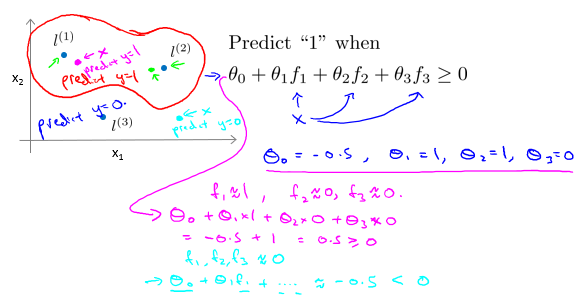 l⁽¹⁾
← x
predict y=1
l⁽²⁾
predict y=1
x₂
predict y=0.
l⁽³⁾
← x
predict y=0
x₁
Predict “1” when
→ θ₀ + θ₁f₁ + θ₂f₂ + θ₃f₃ ≥ 0
x
θ₀ = -0.5 , θ₁ = 1, θ₂ = 1, θ₃ = 0
f₁ ≈ 1 , f₂ ≈ 0, f₃ ≈ 0.
→ θ₀ + θ₁×1 + θ₂×0 + θ₃×0
= -0.5 + 1 = 0.5 ≥ 0
f₁, f₂, f₃ ≈ 0
→ θ₀ + θ₁f₁ + ..... ≈ -0.5 < 0